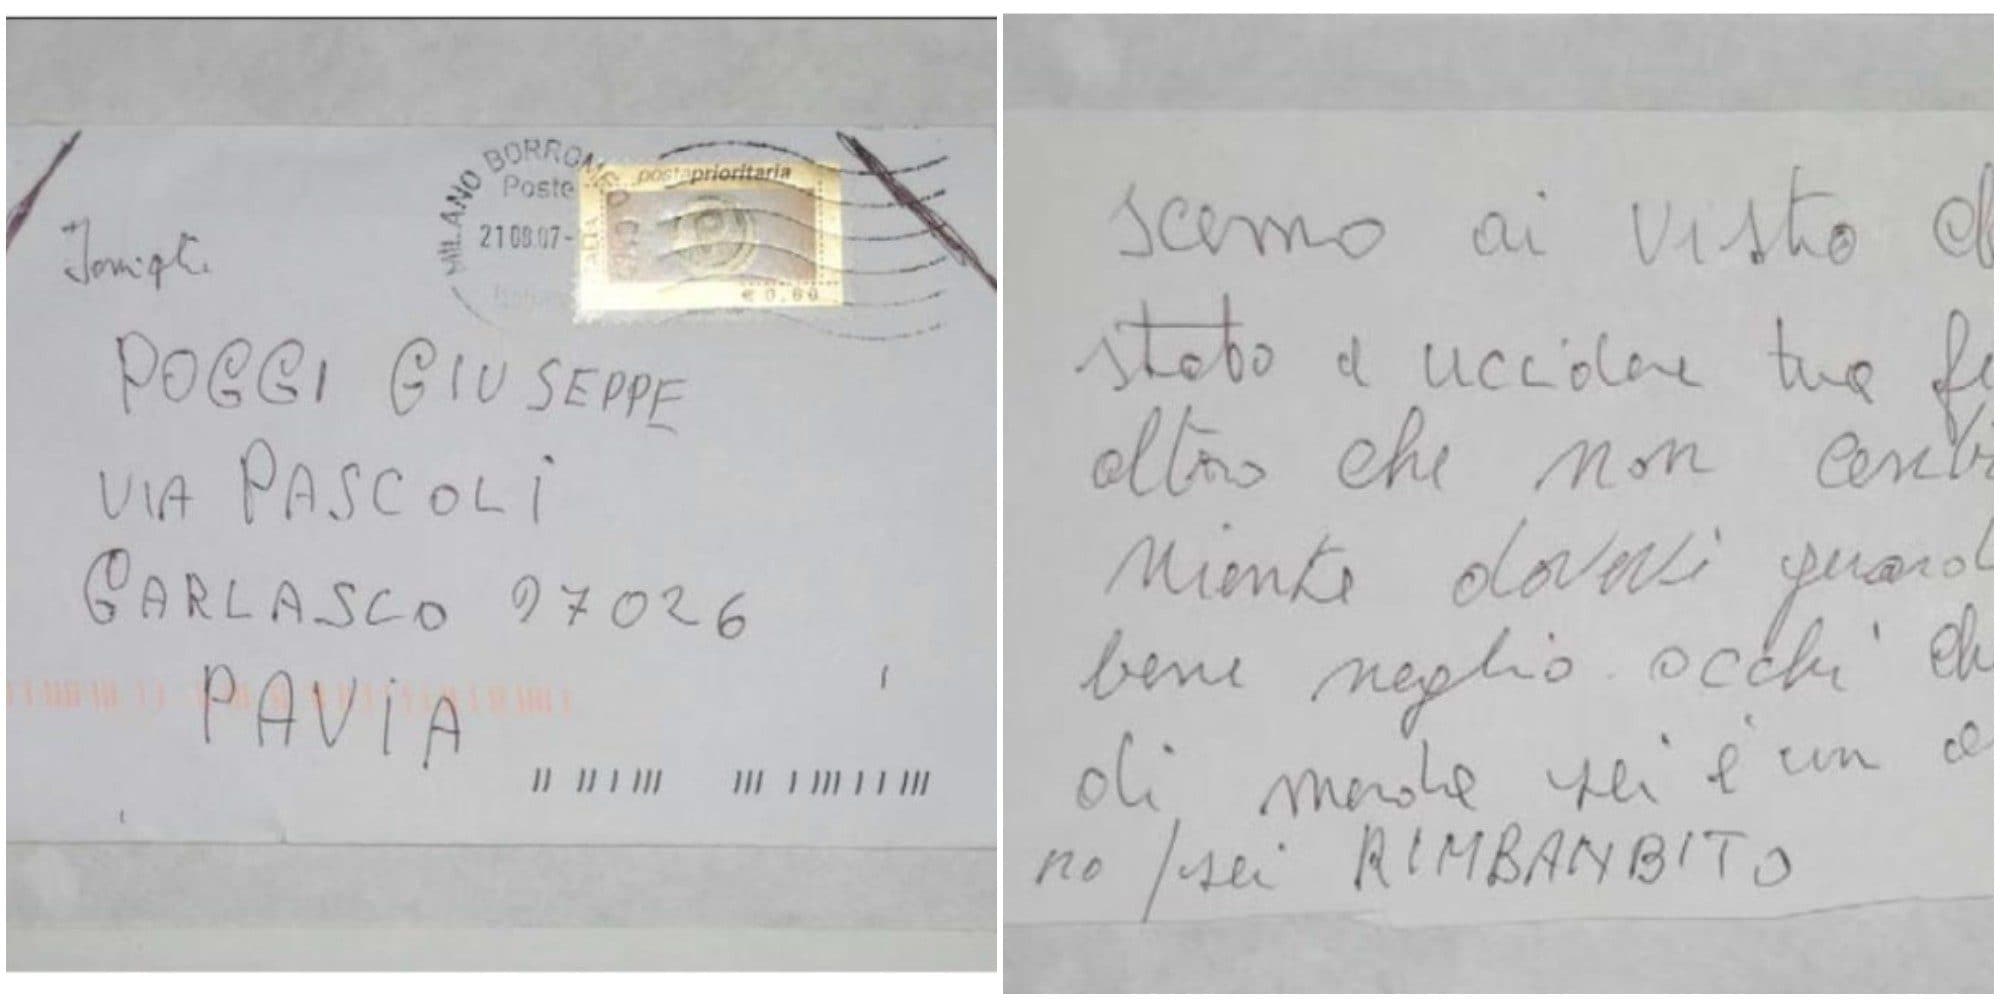 MILANO BORROMEO
Poste
21 08 07-
postaprioritaria
€ 0,60
POGGI GIUSEPPE
VIA PASCOLI
GARLASCO 27026
PAVIA
scemo ai visto
stato a uccidere tua
altro che non
niente dovevi
bene neglio occhi
di merda sei è un
no / sei RIMBANBITO